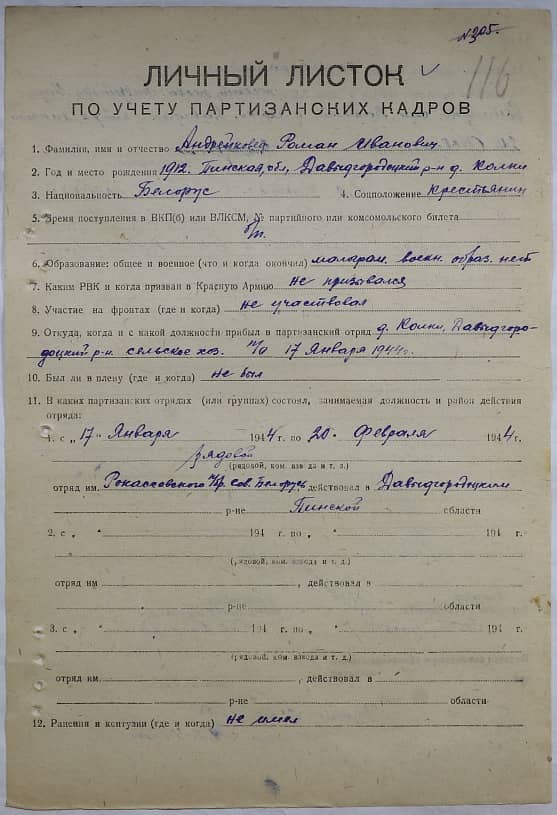 №305.
116
ЛИЧНЫЙ ЛИСТОК
ПО УЧЕТУ ПАРТИЗАНСКИХ КАДРОВ
1. Фамилия, имя и отчество Андрейковец Роман Иванович
2. Год и место рождения 1912. Пинская, обл, Давыдгородоцкий р-н д. Колки
3. Национальность Белорус 4. Соцположение Крестьянин
5. Время поступления в ВКП(б) или ВЛКСМ, № партийного или комсомольского билета
б/п.
6. Образование: общее и военное (что и когда окончил) малограм. военн. образ. нет
7. Каким РВК и когда призван в Красную Армию не призывался
8. Участие на фронтах (где и когда) не участвовал
9. Откуда, когда и с какой должности прибыл в партизанский отряд д. Колки, Давыдгоро-
доцкий р-н. сельское хоз. п/о 17 Января 1944г.
10. Был ли в плену (где и когда) не был
11. В каких партизанских отрядах (или группах) состоял, занимаемая должность и район действия
отряда:
1. с „17" Января 1944 г. по 20 Февраля 1944 г.
рядовой
(рядовой, ком. взвода и т. д.)
отряд им. п/бр. Сов. Белорусь действовал в Давыдгородоцким
р-не Пинской области
2. с „ " 194 г. по „ " 194 г.
(рядовой, ком. взвода и т. д.)
отряд им , действовал в
р-не области
3. с „ " 194 г. по „ " 194 г.
(рядовой, ком. взвода и т. д.)
отряд им. , действовал в
р-не области
12. Ранения и контузии (где и когда) не имел